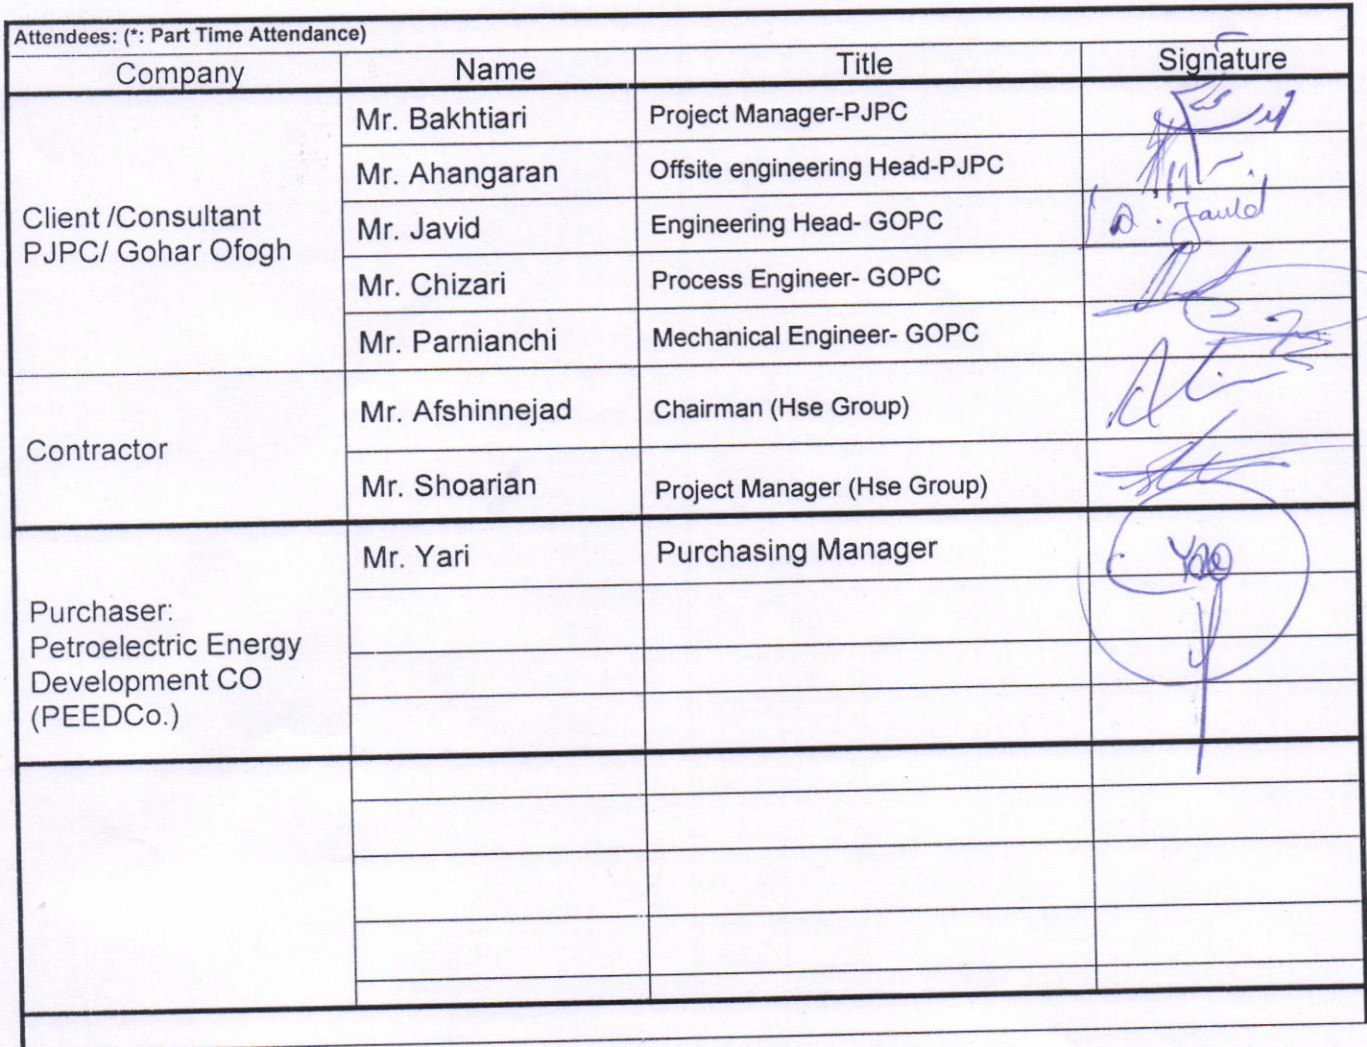 Attendees: (*: Part Time Attendance)
Company Name Title Signature
Client /Consultant
PJPC/ Gohar Ofogh
Mr. Bakhtiari Project Manager-PJPC
Mr. Ahangaran Offsite engineering Head-PJPC
Mr. Javid Engineering Head- GOPC
Mr. Chizari Process Engineer- GOPC
Mr. Parnianchi Mechanical Engineer- GOPC
Contractor
Mr. Afshinnejad Chairman (Hse Group)
Mr. Shoarian Project Manager (Hse Group)
Purchaser:
Petroelectric Energy
Development CO
(PEEDCo.)
Mr. Yari Purchasing Manager